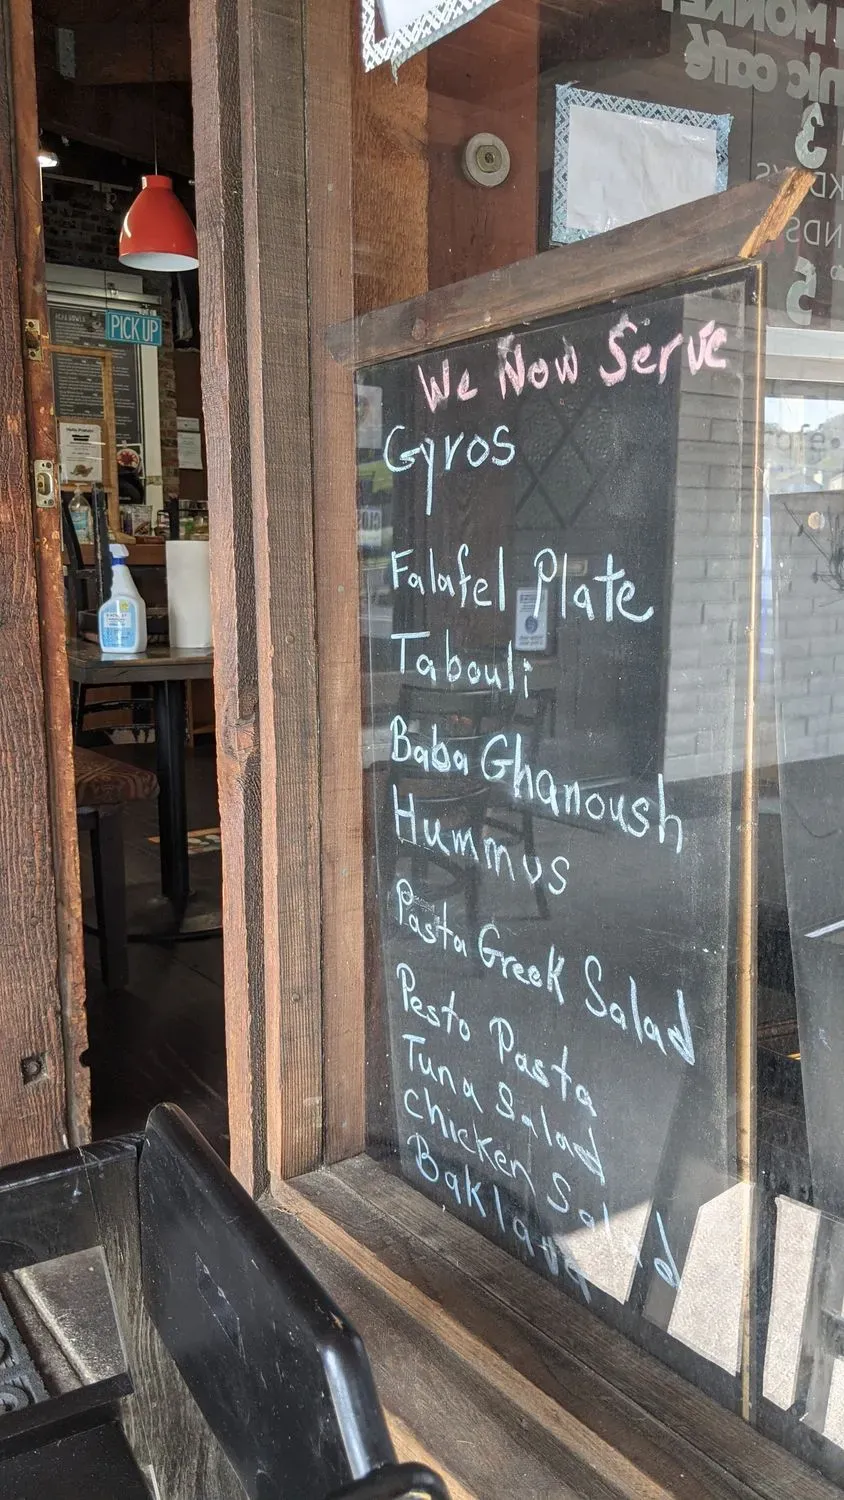 PICK UP
We Now Serve
Gyros
Falafel Plate
Tabouli
Baba Ghanoush
Hummus
Pasta Greek Salad
Pesto Pasta
Tuna Salad
Chicken Salad
Baklava
MONKEY
café
3
5